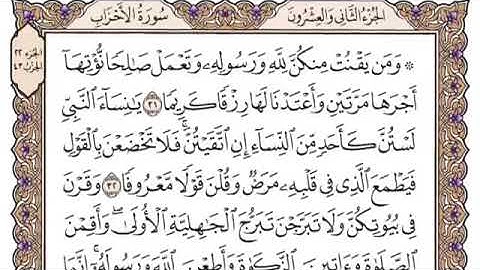 الجُزْءُ الثَّانِي وَالْعِشْرُونَ
سُورَةُ الأَحْزَابِ
الجزء ٢٢
الحزب ٤٣
۞ وَمَن يَقْنُتْ مِنكُنَّ لِلَّهِ وَرَسُولِهِۦ وَتَعْمَلْ صَٰلِحًا نُّؤْتِهَآ
أَجْرَهَا مَرَّتَيْنِ وَأَعْتَدْنَا لَهَا رِزْقًا كَرِيمًا ٣١ يَٰنِسَآءَ ٱلنَّبِيِّ
لَسْتُنَّ كَأَحَدٍ مِّنَ ٱلنِّسَآءِ إِنِ ٱتَّقَيْتُنَّۚ فَلَا تَخْضَعْنَ بِٱلْقَوْلِ
فَيَطْمَعَ ٱلَّذِي فِي قَلْبِهِۦ مَرَضٌ وَقُلْنَ قَوْلًا مَّعْرُوفًا ٣٢ وَقَرْنَ
فِي بُيُوتِكُنَّ وَلَا تَبَرَّجْنَ تَبَرُّجَ ٱلْجَٰهِلِيَّةِ ٱلْأُولَىٰۖ وَأَقِمْنَ
ٱلصَّلَوٰةَ وَءَاتِينَ ٱلزَّكَوٰةَ وَأَطِعْنَ ٱللَّهَ وَرَسُولَهُۥٓۚ إِنَّمَا